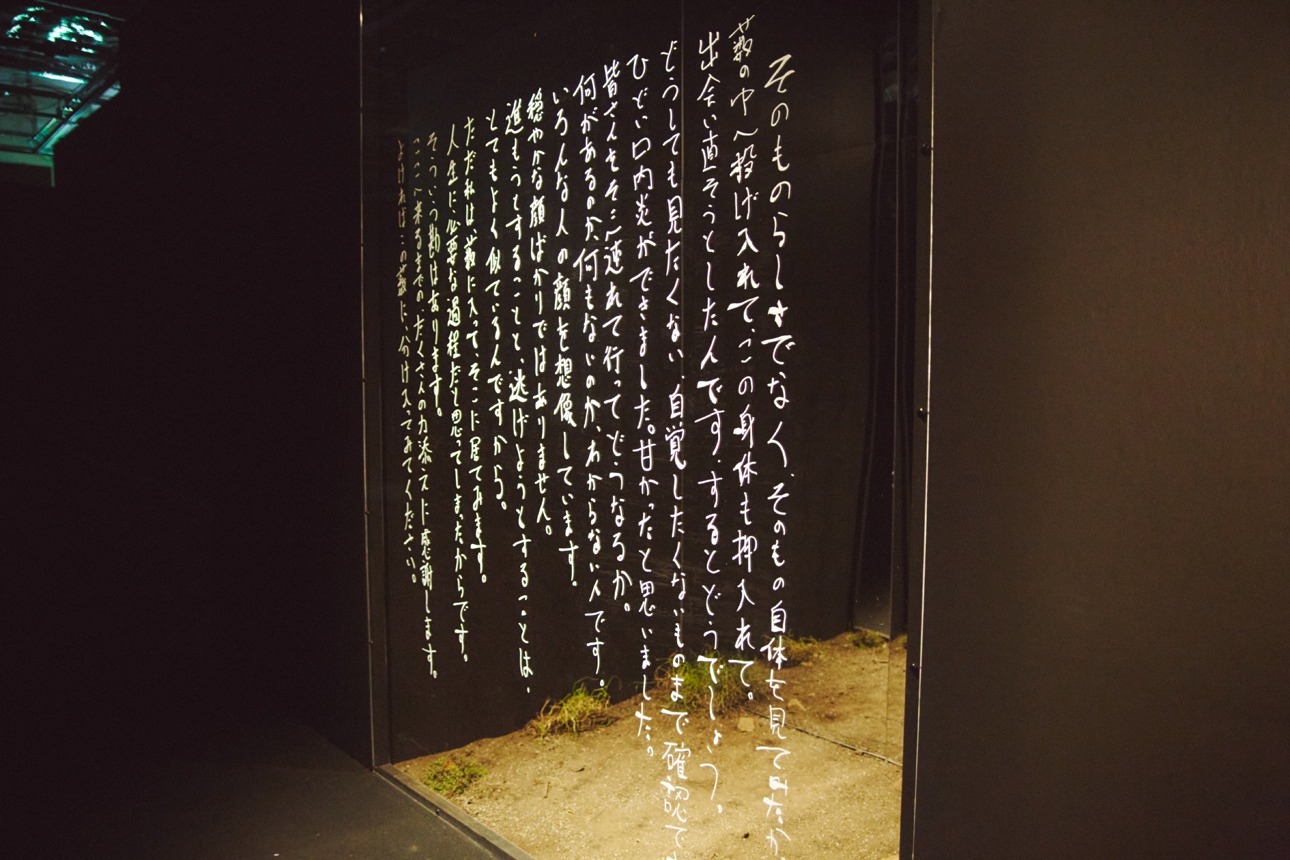 そのものらしさでなく、そのもの自体を見て
藪の中へ投げ入れて、この身体も押入れて。
出会い直そうとしたんです。するとどうでしょう。
どうしても見たくない、自覚したくないものまで確認で
ひどい口内炎ができました。甘かったと思いました。
皆さんをそこに連れて行ってどうなるか。
何があるのか、何もないのか、わからない人です。
いろんな人の顔を想像しています。
穏やかな顔ばかりではありません。
進もうとすることと、逃げようとすることは、
とてもよく似ているんですから。
ただ私は、藪に入って、そこに居てみます。
人生に必要な過程だと思ってしまったからです。
そういう勘はあります。
ここへ来るまでのたくさんの力添えに感謝します。
よければ、この藪に、分け入ってみてください。